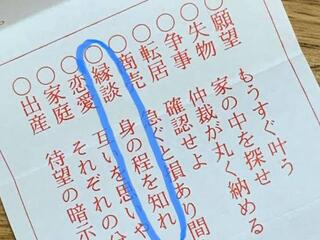 ○願望 もうすぐ叶う
○失物 家の中を探せ
○争事 仲裁が丸く納める
○転居 確認せよ 間
○商売 急ぐと損あり
○縁談 身の程を知れ
○恋愛 互いを思いや
○家庭 それぞれの分
○出産 待望の暗示